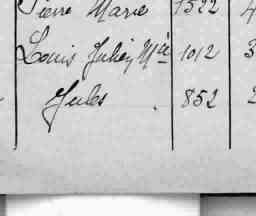 Pierre Marie 1522 4
Louis Julien Mie 1012 3
Jules . 852 2